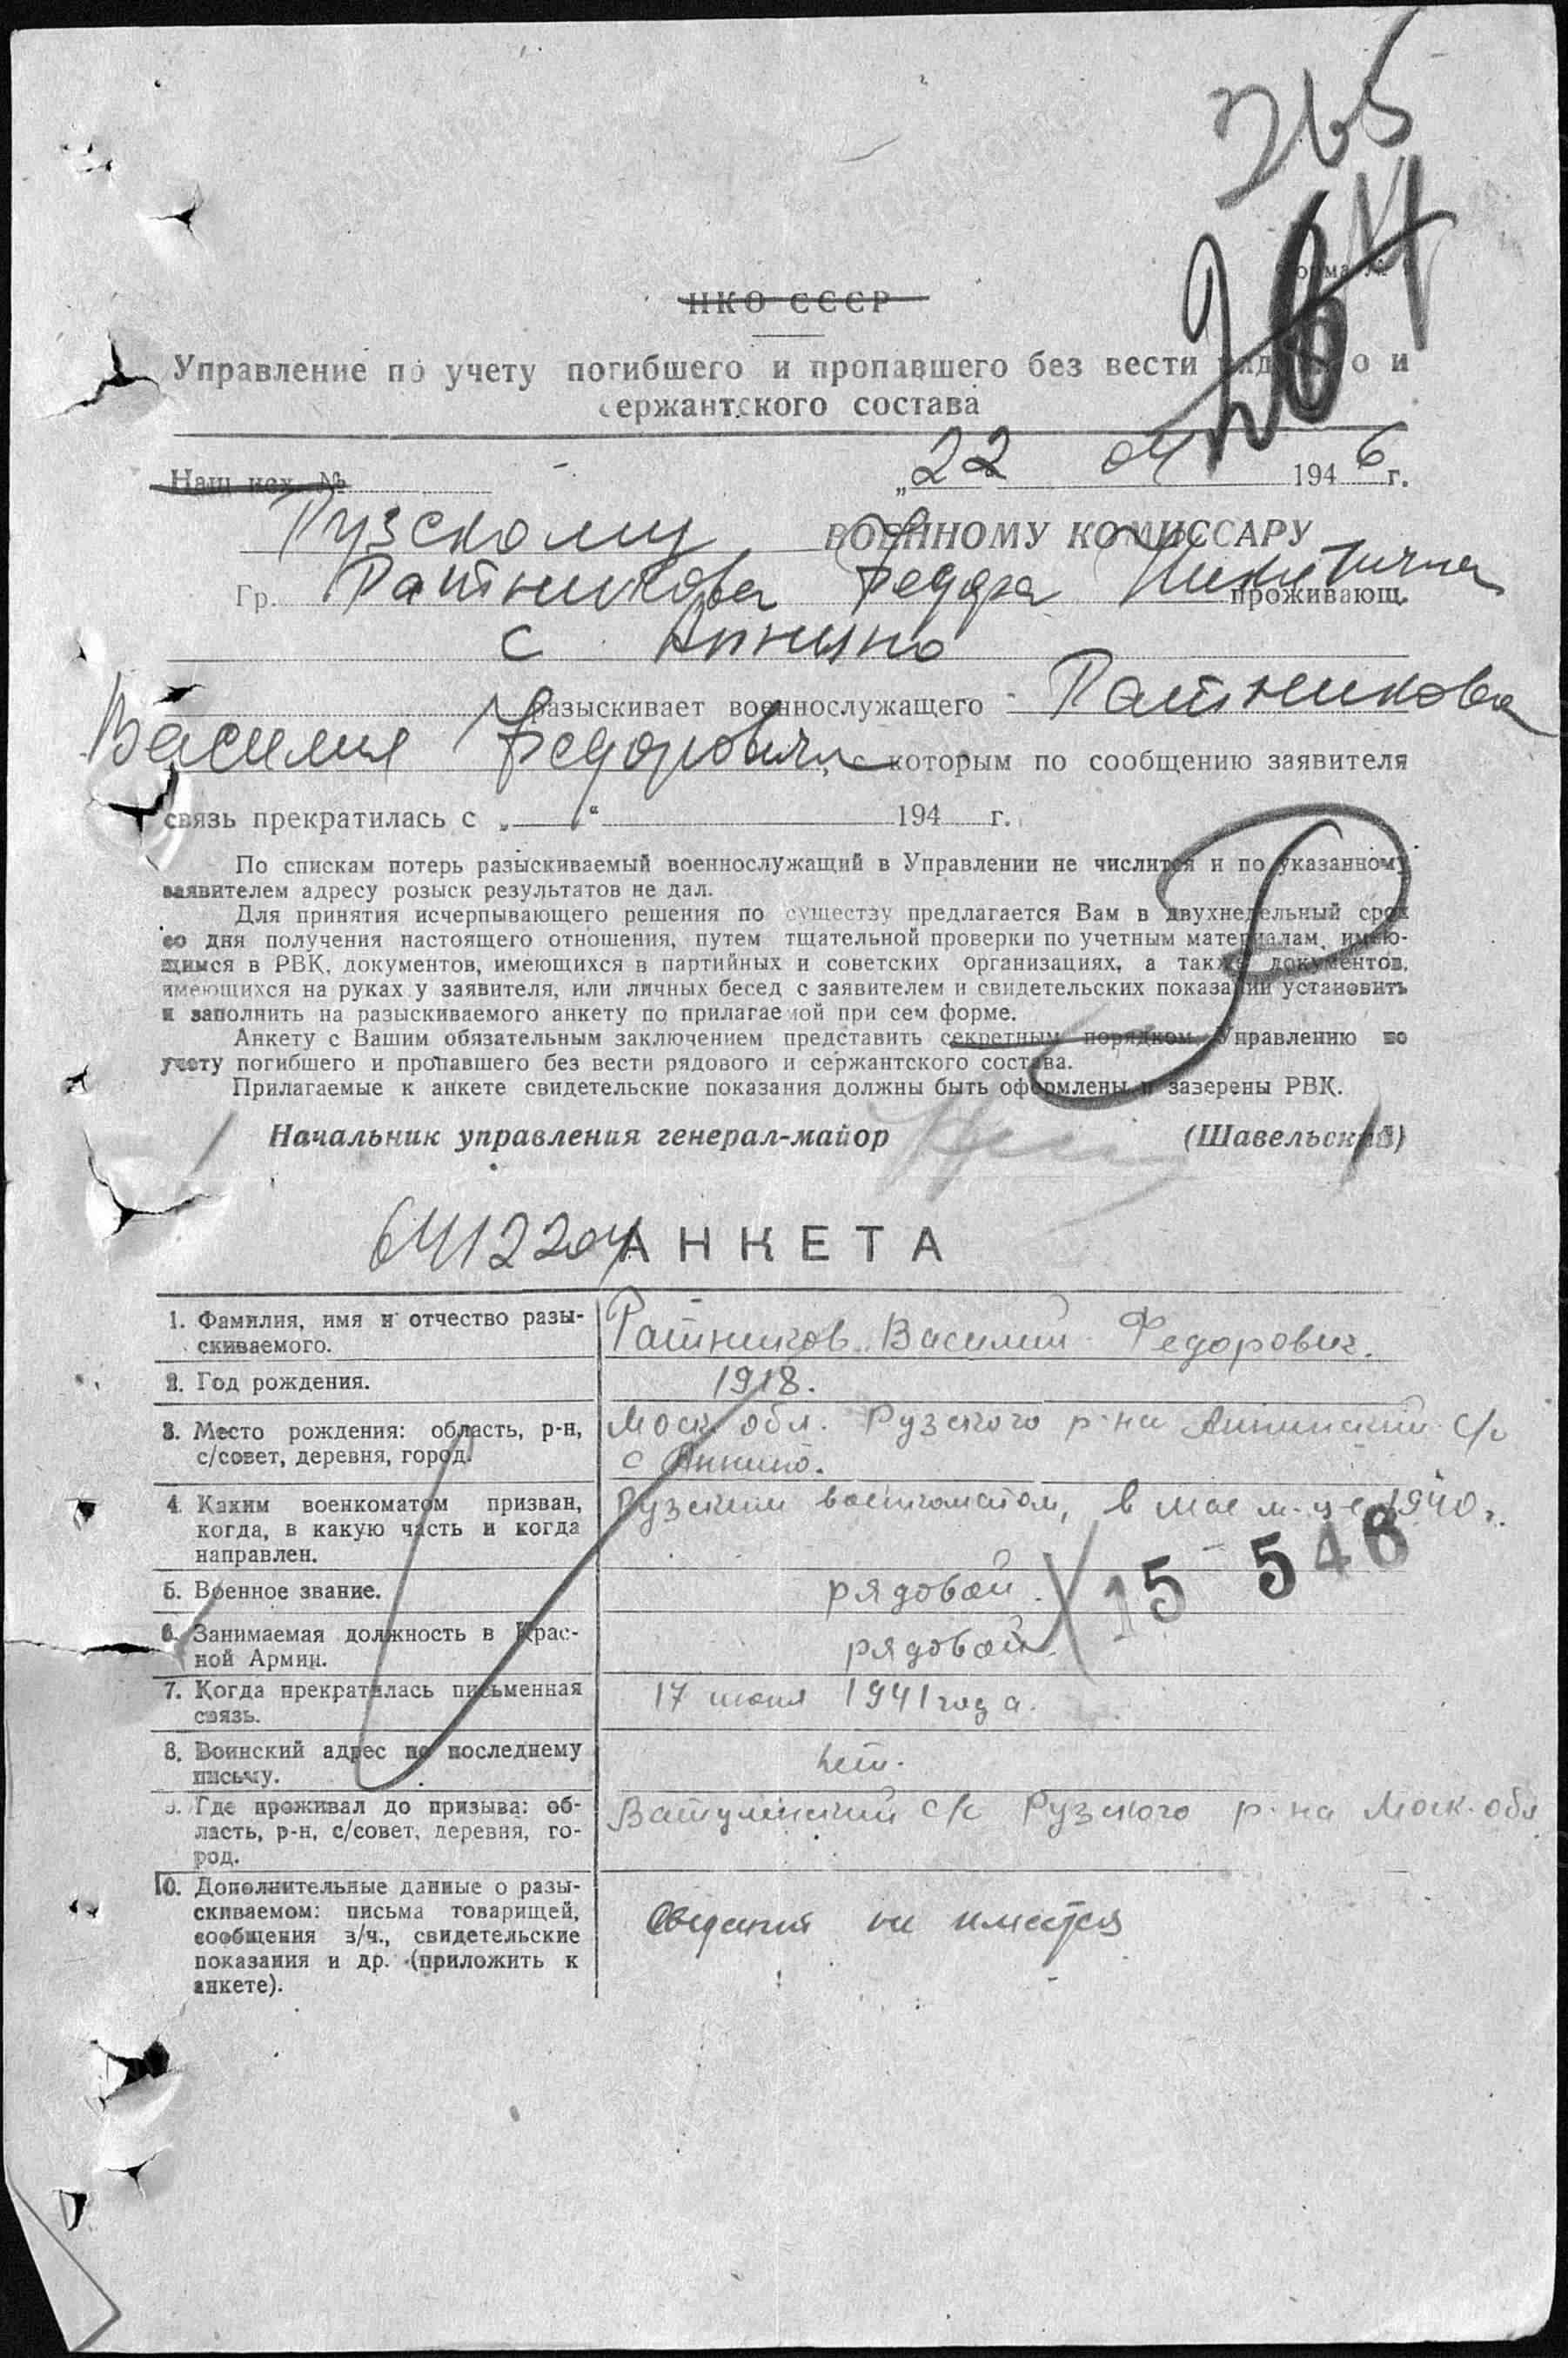 265
264
Форма №
НКО СССР
Управление по учету погибшего и пропавшего без вести рядового и
сержантского состава
Наш исх. №
„22 04 1946 г.
Рузскому ВОЕННОМУ КОМИССАРУ
Гр. Ратникова Федора Никитична проживающ.
с Аннино
разыскивает военнослужащего Ратникова
Василия Федоровича, с которым по сообщению заявителя
связь прекратилась с „ “ 194 г.
По спискам потерь разыскиваемый военнослужащий в Управлении не числится и по указанному
заявителем адресу розыск результатов не дал.
Для принятия исчерпывающего решения по существу предлагается Вам в двухнедельный срок
со дня получения настоящего отношения, путем тщательной проверки по учетным материалам, имею-
щимся в РВК, документов, имеющихся в партийных и советских организациях, а также документов,
имеющихся на руках у заявителя, или личных бесед с заявителем и свидетельских показаний установить
и заполнить на разыскиваемого анкету по прилагаемой при сем форме.
Анкету с Вашим обязательным заключением представить секретным порядком Управлению по
учету погибшего и пропавшего без вести рядового и сержантского состава.
Прилагаемые к анкете свидетельские показания должны быть оформлены и заверены РВК.
Начальник управления генерал-майор (Шавельский)
6412204 АНКЕТА
1. Фамилия, имя и отчество разы-
скиваемого.
Ратников Василий Федорович.
2. Год рождения.
1918.
3. Место рождения: область, р-н,
с/совет, деревня, город.
Моск. обл. Рузского р-на Аннинский с/с
с Аннино.
4. Каким военкоматом призван,
когда, в какую часть и когда
направлен.
Рузским военкоматом, в мае м-це 1940 г.
15 546
5. Военное звание.
рядовой.
6. Занимаемая должность в Крас-
ной Армии.
рядовой.
7. Когда прекратилась письменная
связь.
17 июня 1941 года.
8. Воинский адрес по последнему
письму.
нет.
9. Где проживал до призыва: об-
ласть, р-н, с/совет, деревня, го-
род.
Ватулинский с/с Рузского р-на Моск. обл
10. Дополнительные данные о разы-
скиваемом: письма товарищей,
сообщения в/ч., свидетельские
показания и др. (приложить к
анкете).
Сведения не имеются